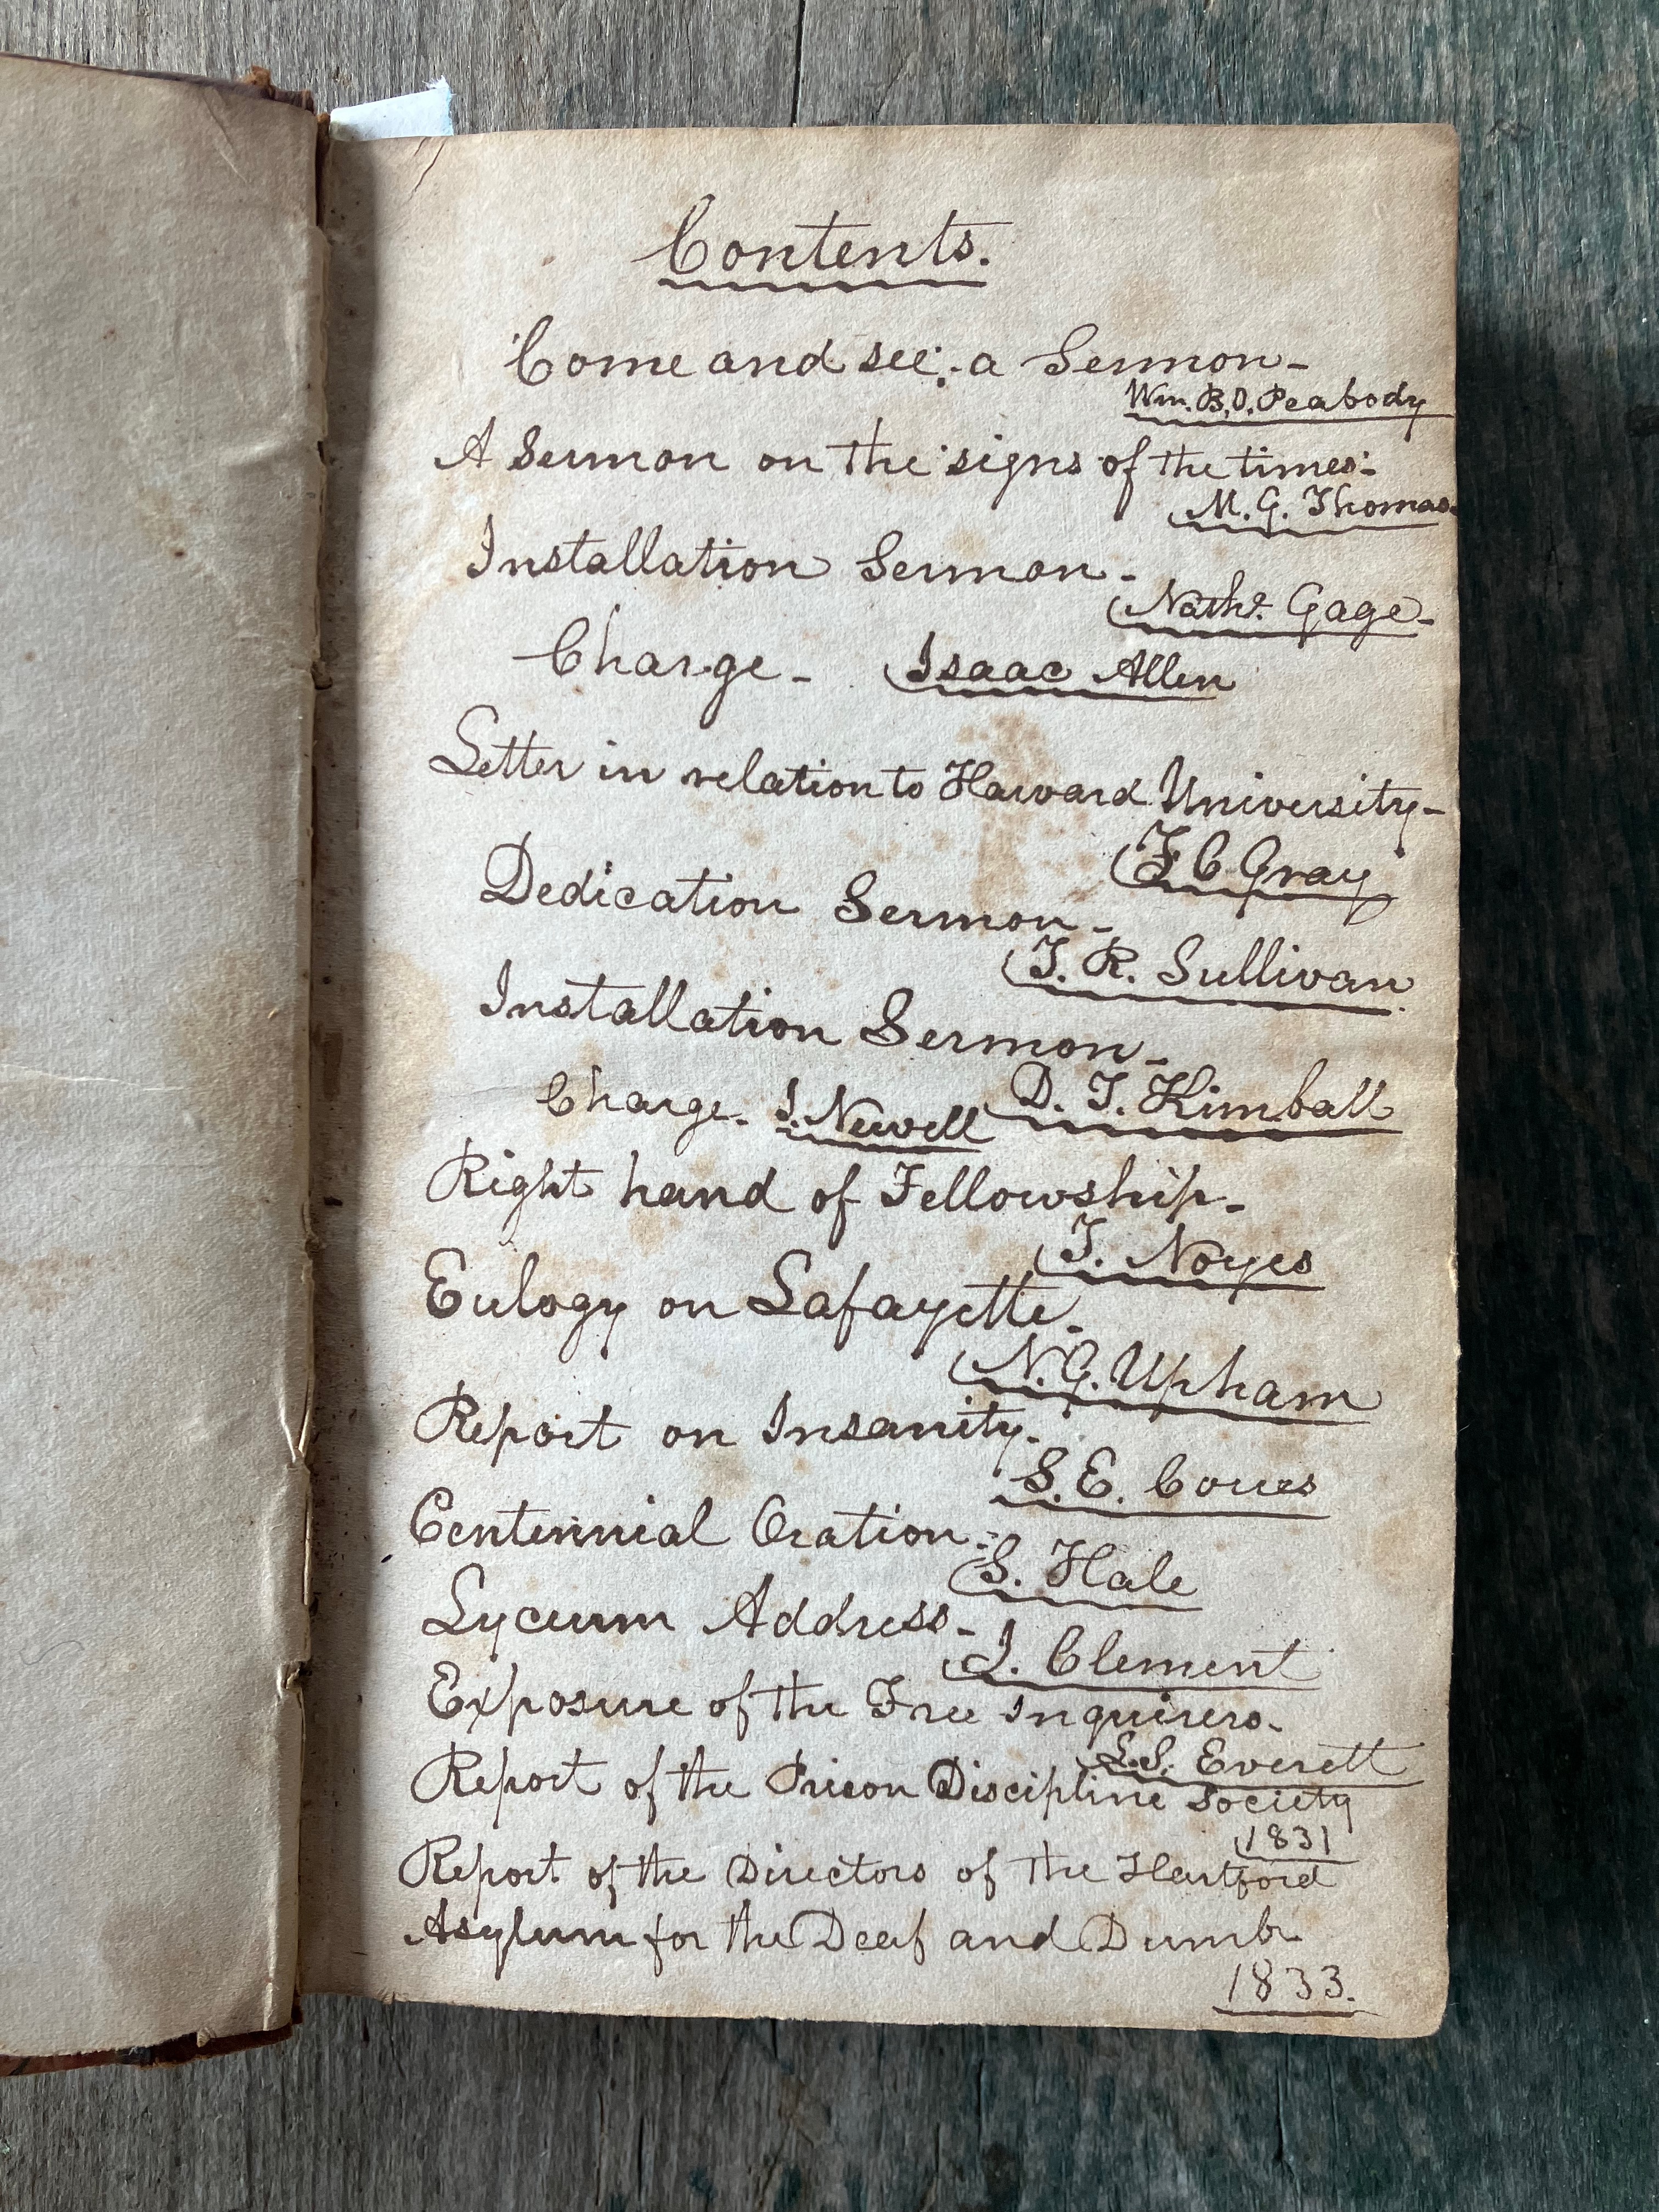 Contents.
Come and see:- a Sermon-
Wm. B. O. Peabody
A Sermon on the 'signs of the times'-
M. G. Thomas.
Installation Sermon-
Nathl. Gage-
Charge- Isaac Allen
Letter in relation to Harvard University-
F C Gray
Dedication Sermon-
T. R. Sullivan
Installation Sermon-
D. T. Kimball
Charge- J. Newell
Right hand of Fellowship-
T. Noyes
Eulogy on Lafayette-
N. G. Upham
Report on Insanity-
S. E. Coues
Centennial Oration-
S. Hale
Lyceum Address-
J. Clement
Exposure of the Free Inquirers-
L. S. Everett
Report of the Prison Discipline Society
1831
Report of the Directors of the Hartford
Asylum for the Deaf and Dumb
1833.